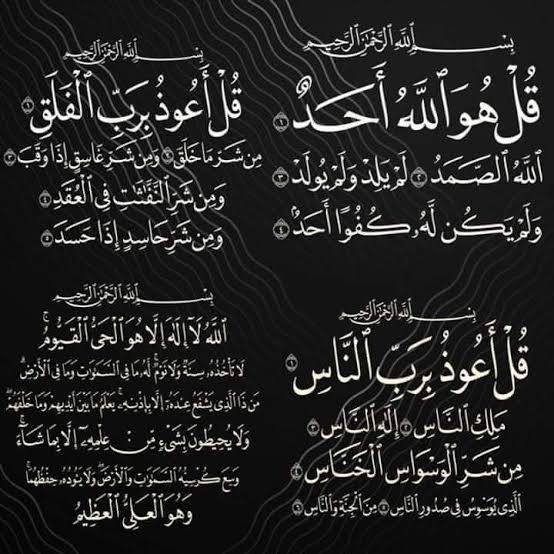 بِسْمِ ٱللَّهِ ٱلرَّحْمَٰنِ ٱلرَّحِيمِ
قُلْ هُوَ ٱللَّهُ أَحَدٌ ١
ٱللَّهُ ٱلصَّمَدُ ٢ لَمْ يَلِدْ وَلَمْ يُولَدْ ٣
وَلَمْ يَكُن لَّهُۥ كُفُوًا أَحَدٌۢ ٤
بِسْمِ ٱللَّهِ ٱلرَّحْمَٰنِ ٱلرَّحِيمِ
قُلْ أَعُوذُ بِرَبِّ ٱلْفَلَقِ ١
مِن شَرِّ مَا خَلَقَ ٢ وَمِن شَرِّ غَاسِقٍ إِذَا وَقَبَ ٣
وَمِن شَرِّ ٱلنَّفَّٰثَٰتِ فِي ٱلْعُقَدِ ٤
وَمِن شَرِّ حَاسِدٍ إِذَا حَسَدَ ٥
بِسْمِ ٱللَّهِ ٱلرَّحْمَٰنِ ٱلرَّحِيمِ
قُلْ أَعُوذُ بِرَبِّ ٱلنَّاسِ ١
مَلِكِ ٱلنَّاسِ ٢ إِلَٰهِ ٱلنَّاسِ ٣
مِن شَرِّ ٱلْوَسْوَاسِ ٱلْخَنَّاسِ ٤
ٱلَّذِي يُوَسْوِسُ فِي صُدُورِ ٱلنَّاسِ ٥ مِنَ ٱلْجِنَّةِ وَٱلنَّاسِ ٦
بِسْمِ ٱللَّهِ ٱلرَّحْمَٰنِ ٱلرَّحِيمِ
ٱللَّهُ لَآ إِلَٰهَ إِلَّا هُوَ ٱلْحَيُّ ٱلْقَيُّومُ ۚ
لَا تَأْخُذُهُۥ سِنَةٌ وَلَا نَوْمٌ ۚ لَّهُۥ مَا فِي ٱلسَّمَٰوَٰتِ وَمَا فِي ٱلْأَرْضِ ۗ
مَن ذَا ٱلَّذِي يَشْفَعُ عِندَهُۥٓ إِلَّا بِإِذْنِهِۦ ۚ يَعْلَمُ مَا بَيْنَ أَيْدِيهِمْ وَمَا خَلْفَهُمْ ۖ
وَلَا يُحِيطُونَ بِشَيْءٍ مِّنْ عِلْمِهِۦٓ إِلَّا بِمَا شَآءَ ۚ
وَسِعَ كُرْسِيُّهُ ٱلسَّمَٰوَٰتِ وَٱلْأَرْضَ ۖ وَلَا يَـُٔودُهُۥ حِفْظُهُمَا ۚ
وَهُوَ ٱلْعَلِيُّ ٱلْعَظِيمُ